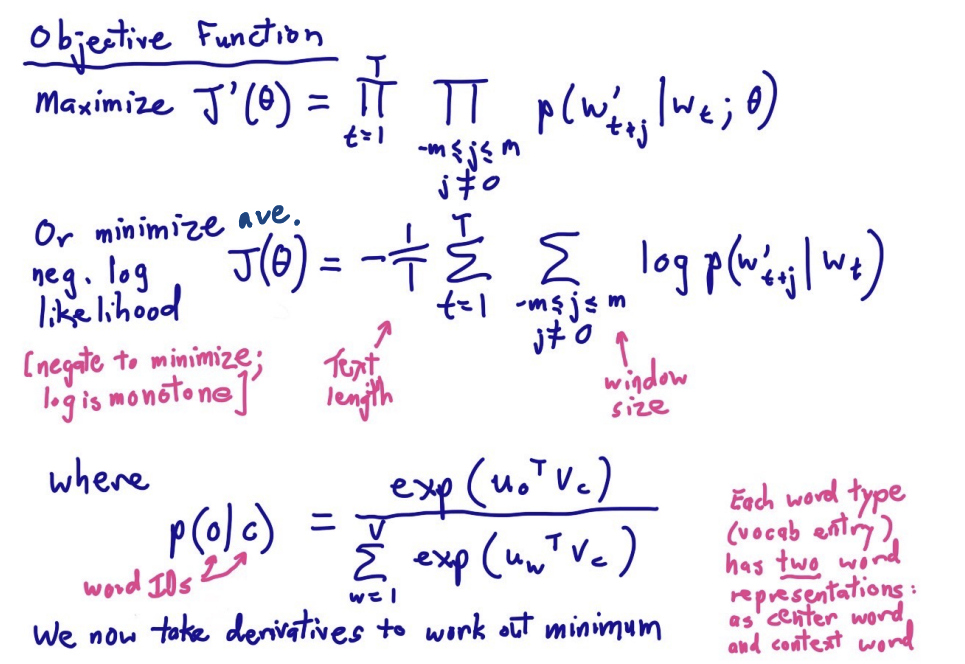 Objective Function
Maximize J'(θ) = ∏_{t=1}^{T} ∏_{-m≤j≤m, j≠0} p(w'_{t+j} | w_t; θ)
Or minimize ave.
neg. log
likelihood
J(θ) = -1/T ∑_{t=1}^{T} ∑_{-m≤j≤m, j≠0} log p(w'_{t+j} | w_t)
[negate to minimize;
log is monotone]
Text
length
window
size
where
p(o|c) = exp(u_o^T v_c) / ∑_{w=1}^{V} exp(u_w^T v_c)
word IDs
Each word type
(vocab entry)
has two word
representations:
as center word
and context word
We now take derivatives to work out minimum